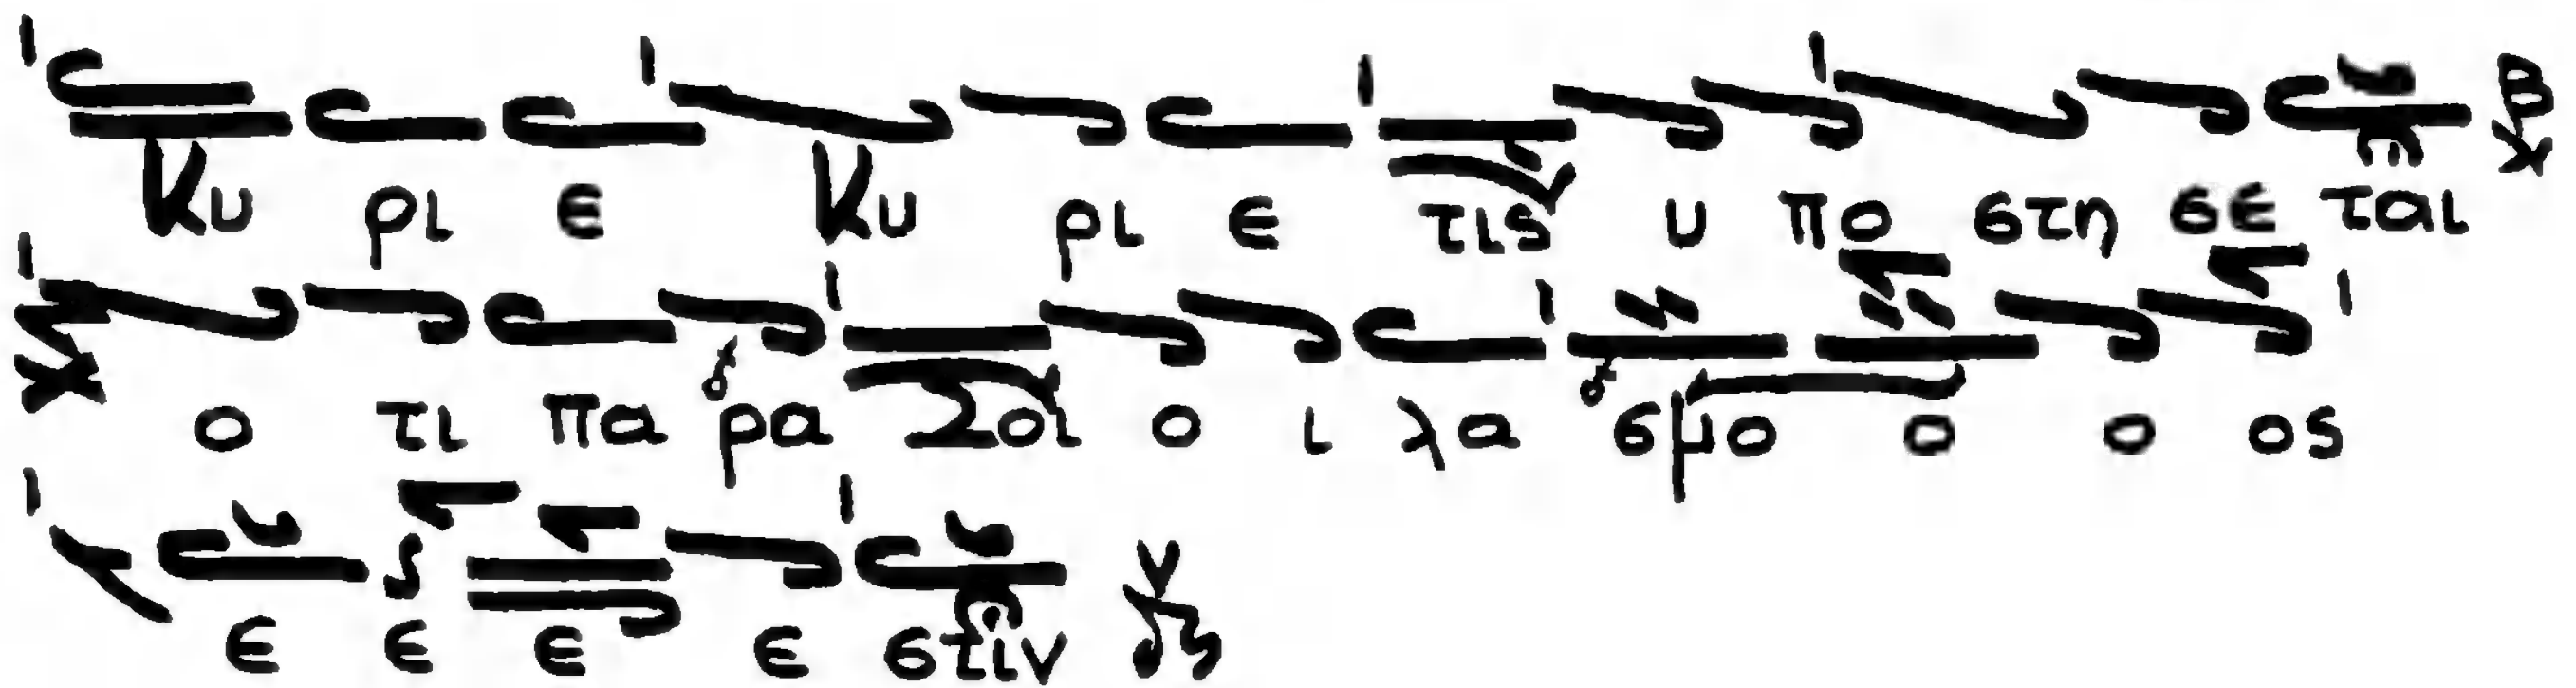 Κυ ρι ε Κυ ρι ε τις υ πο στη σε ται
ο τι πα ρα Σοι ο ι λα σμο ο ο ος
ε ε ε ε στιν